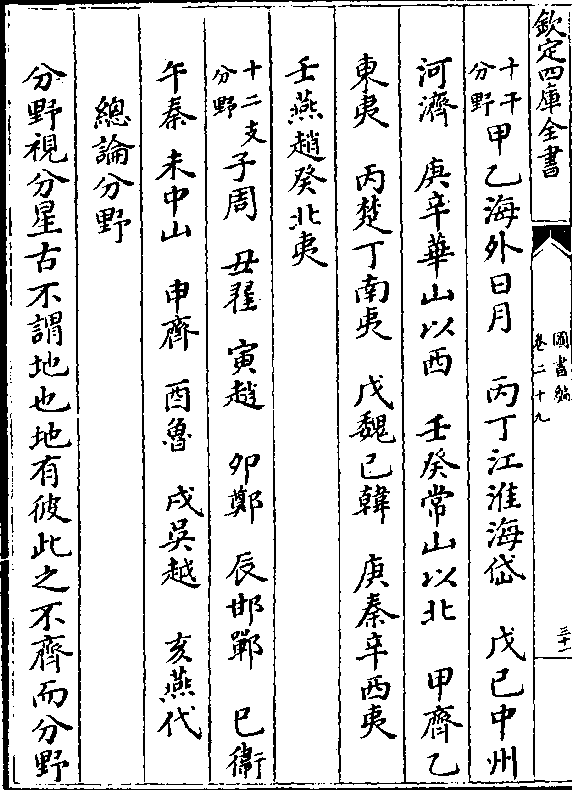 欽定四庫全書
圖書編
卷二十九
三十一
十干分野甲乙海外日月　丙丁江淮海岱　戊己中州
河濟　庚辛華山以西　壬癸常山以北　甲齊乙
東夷　丙楚丁南夷　戊魏己韓　庚秦辛西夷
壬燕趙癸北夷
十二支分野子周　丑翟　寅趙　卯鄭　辰邯鄲　巳衞
午秦　未中山　申齊　酉魯　戌吳越　亥燕代
總論分野
分野視分星古不謂地也地有彼此之不齊而分野